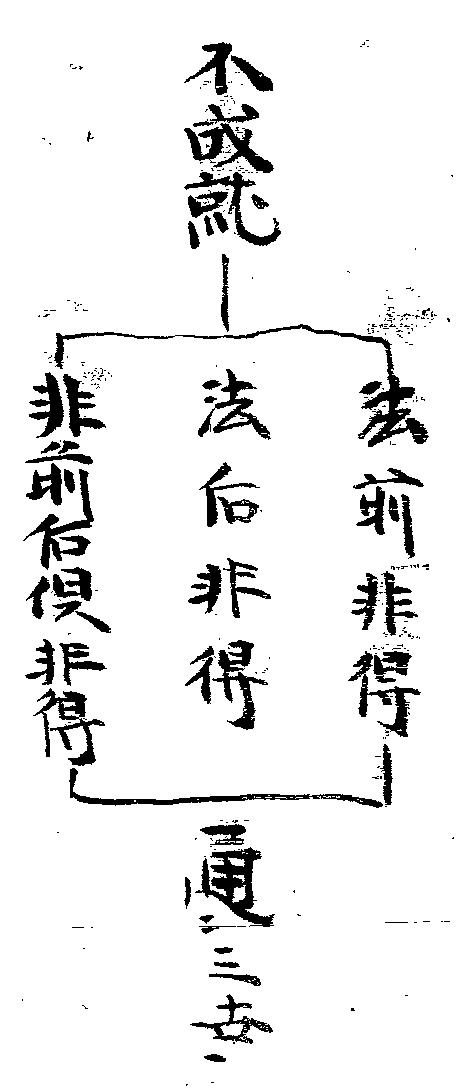 不成就
法前非得
法后非得
非前后俱非得
通三世